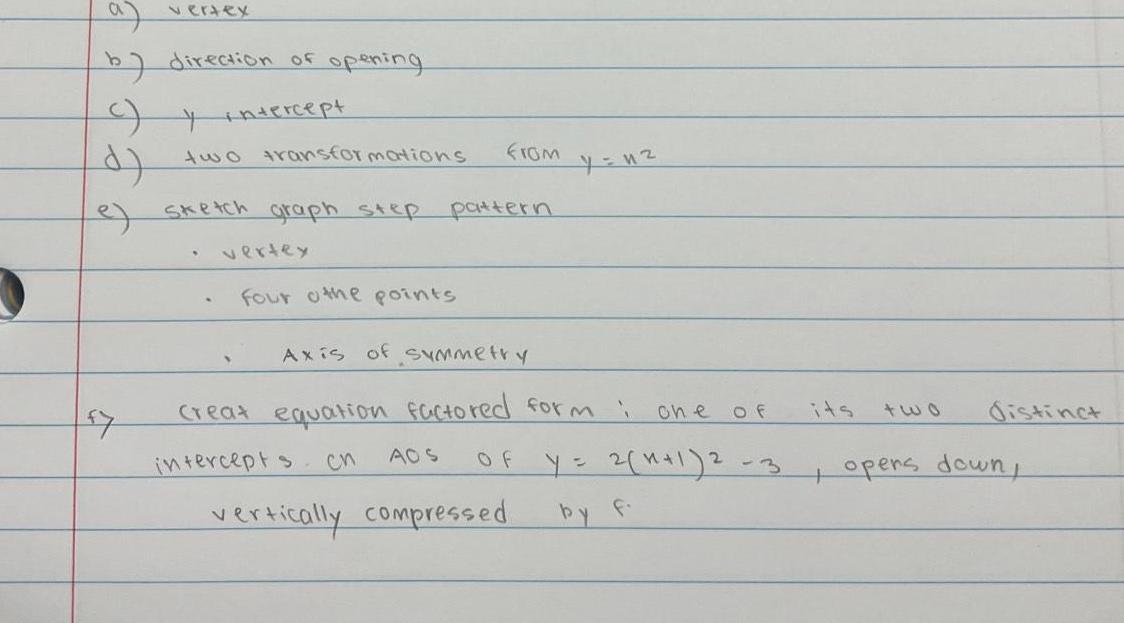 a) vertex
b) direction of opening
c) y intercept
d) two transformations from y = x²
e) sketch graph step pattern
· vertex
· four othe points
· Axis of symmetry
f) creat equation factored form : one of its two distinct
intercepts on AOS of y = 2(x+1)² - 3 , opens down,
vertically compressed by f.